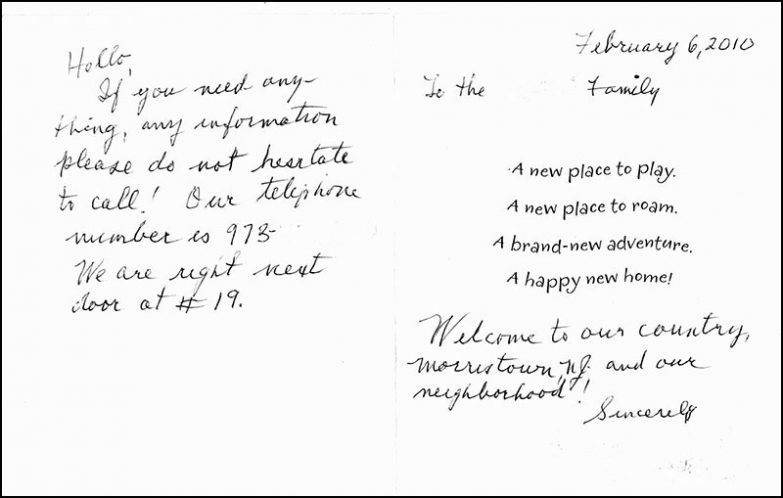 Hello,
If you need any-
thing, any information
please do not hesitate
to call! Our telephone
number is 973-
We are right next
door at # 19.
February 6, 2010
To the Family
A new place to play.
A new place to roam.
A brand-new adventure.
A happy new home!
Welcome to our country,
Morristown, NJ and our
neighborhood!
Sincerely